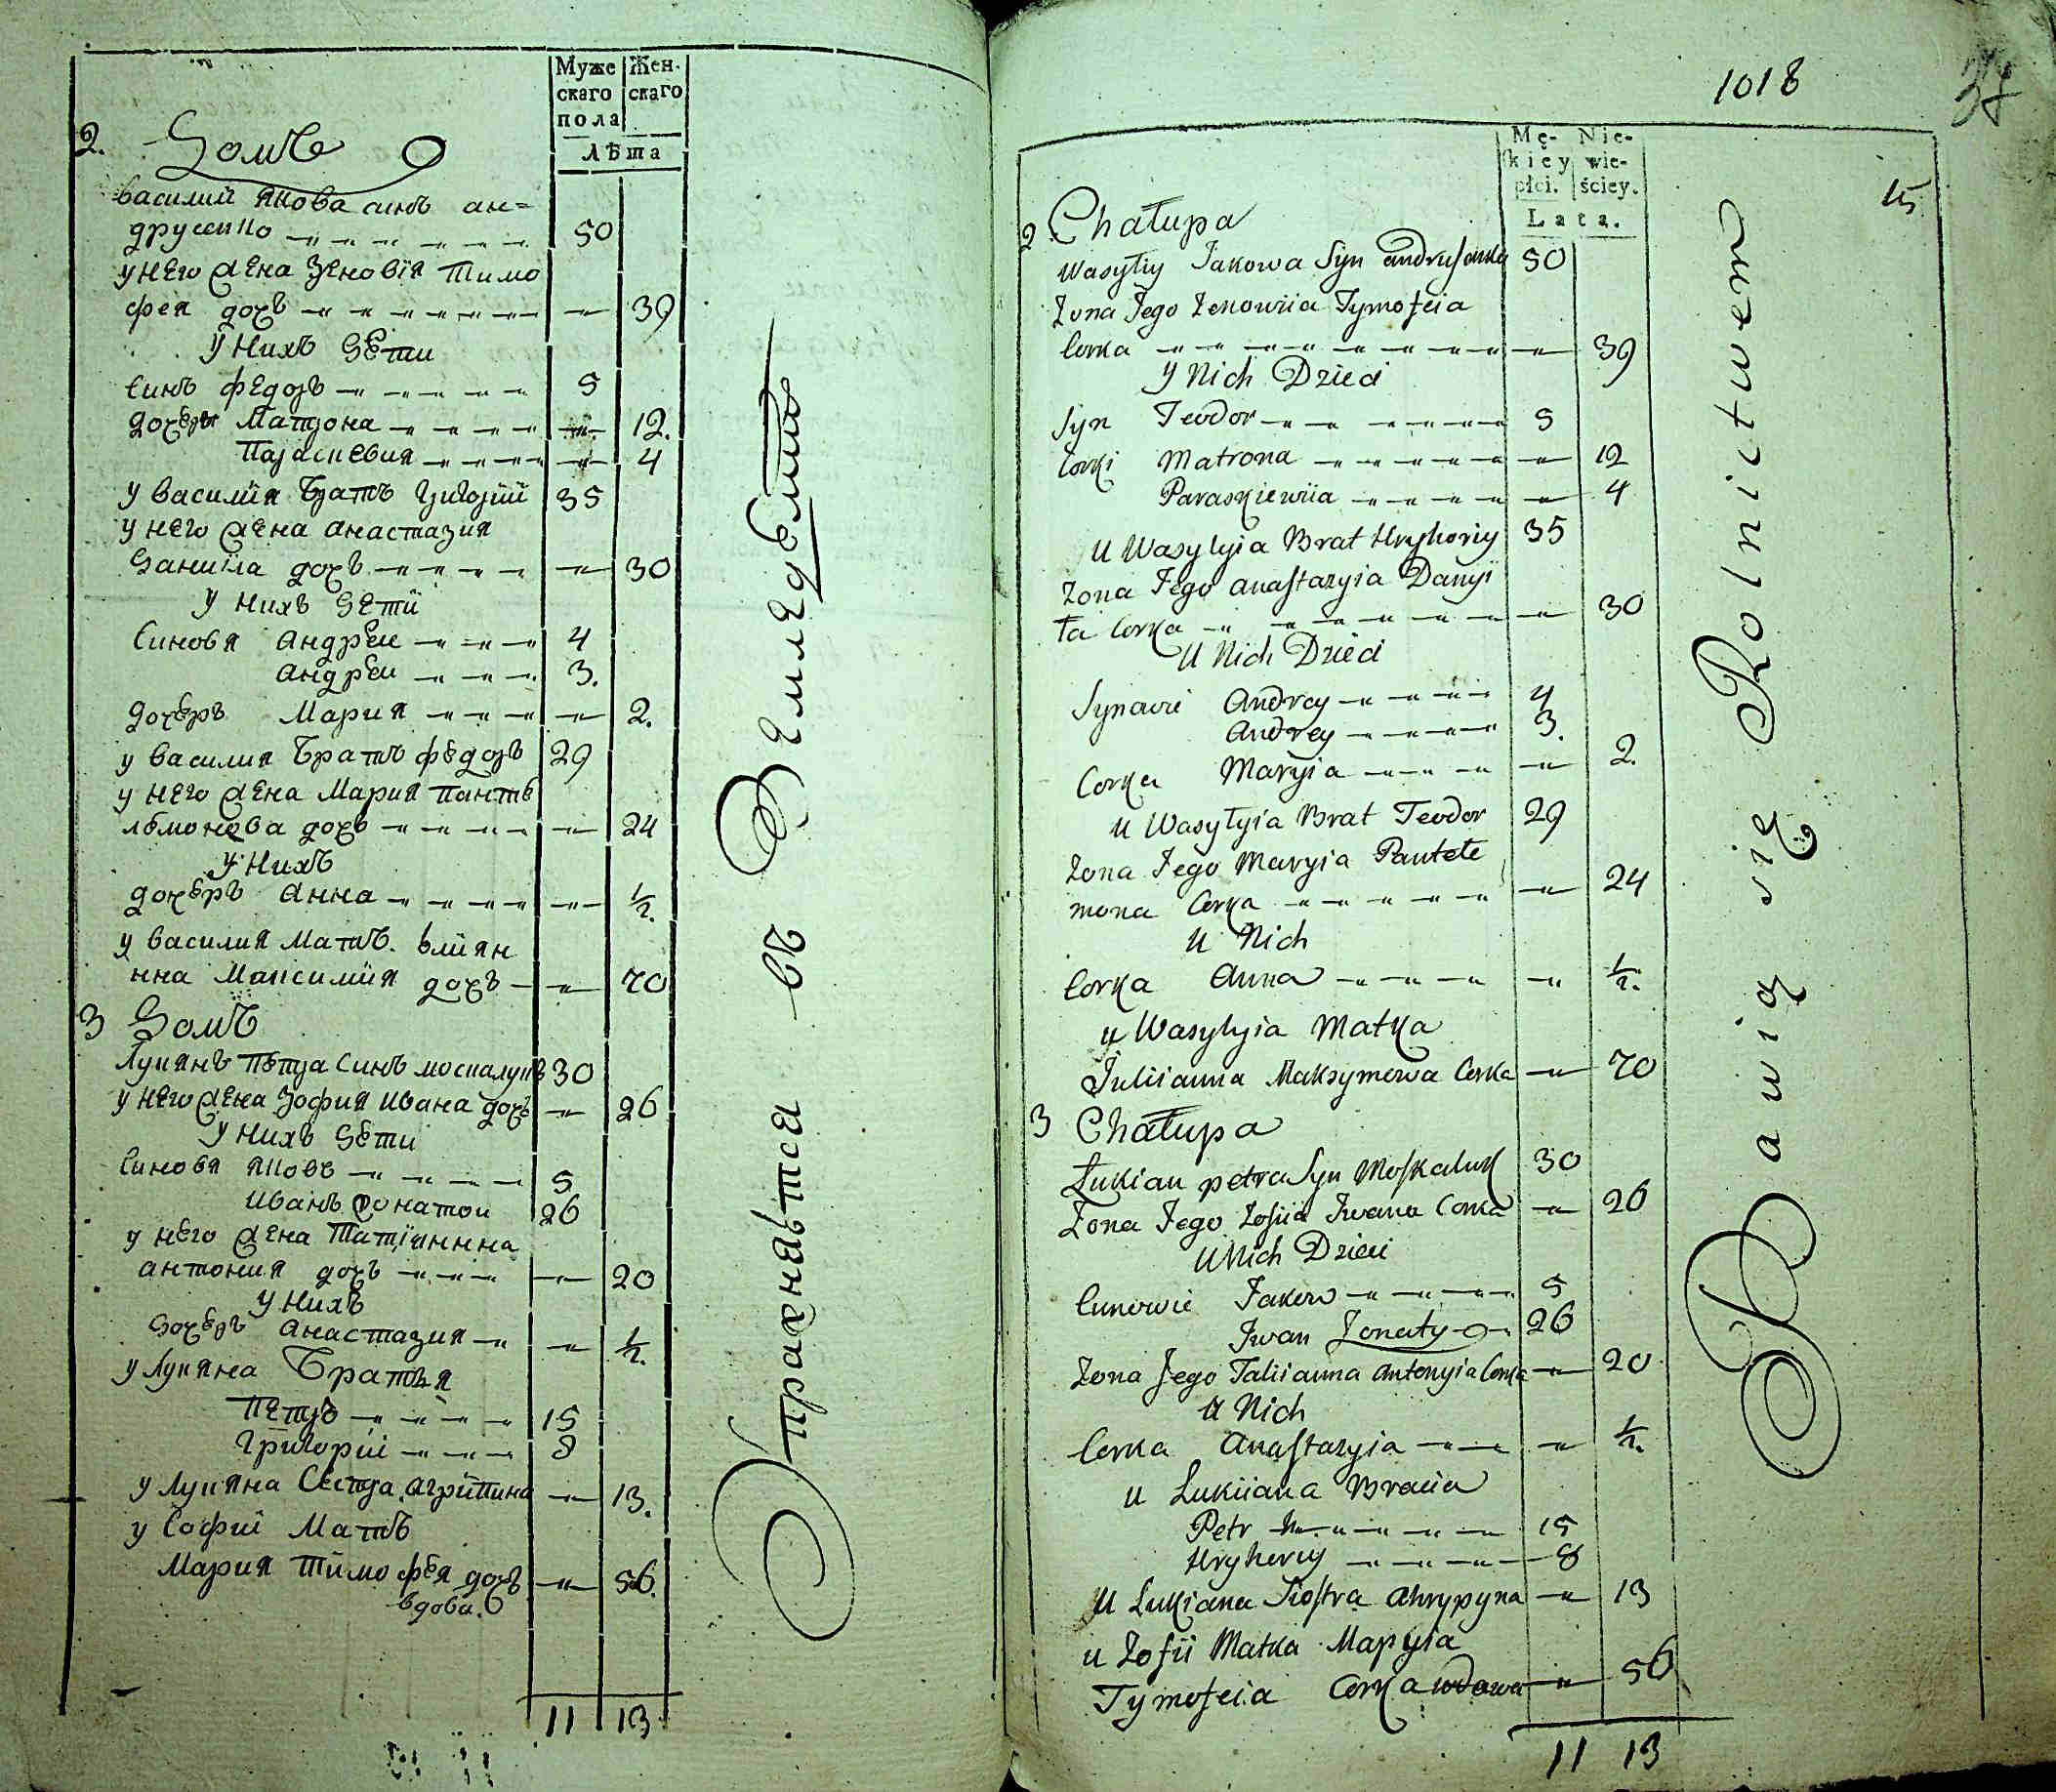 Муже Жен-
скаго скаго
пола
лѣта
2. Домъ
василий Якова синъ ан=
друсенко 50
у него жена Зеновїя Тимо
фея дочъ 39
у Нихъ Дѣти
Синъ федоръ 5
дочери Матрона 12.
Параскевия 4
у василїя Братъ Григорїй 35
у него жена анастазия
Данїила дочъ 30
у нихъ Дети
Синовя андреи 4
андреи 3.
дочеръ Мария 2.
у василия Братъ федоръ 29
у него жена Мария Панте
лемонова дочъ 24
у Нихъ
дочеръ анна 1/2.
у василия Матъ. Ѣлиян
нна Максимия дочъ 70
3 Домъ
Лукянъ Петра Синъ москалукъ 30
у него жена Зофия ивана дочъ 26
у Нихъ Дети
Синовя Яковъ 5
иванъ жонатои 26
у него жена Татїяннна
антония дочъ 20
у Нихъ
Дочеръ анастазия 1/2.
у Лукяна Братья
Петръ 15
Григорїи 8
у Лукяна Сестра агрипина 13.
у Софии Матъ
Мария Тимофея дочъ 56.
вдова.
11 13
Упражнявтса въ Земледелию
1018
37
15
Mę- Nie-
ſkiey wie-
płci. ściey.
Lata.
2 Chałupa
Wasyłiy Jakowa Syn andruſenko 50
Zona Jego Zenowiia Tymofeia
Corka 39
Y Nich Dzieci
Syn Teodor 5
Corki Matrona 12
Paraskiewiia 4
U Wasylyia Brat Hryhoriy 35
Zona Jego anaſtazyia Danyi
ła Corka 30
U Nich Dzieci
Synowie Andrey 4
Andrey 3.
Corka Maryia 2.
u Wasyłyia Brat Teodor 29
Zona Jego Maryia Pantełe
mona Corka 24
u Nich
Corka Anna 1/2.
u Wasylyia Matka
Juliianna Maksymowa Corka 70
3 Chałupa
Łukian petra Syn Moſkaluk 30
Zona Jego Zofiia Jwana Corka 26
U Nich Dzieci
Cunowie Jakow 5
Jwan Zonaty 26
Zona Jego Taliianna Antonyia Corka 20
U Nich
Corka Anaſtazyia 1/2.
u Łukiiana Braciia
Petr 15
Hryhoriy 8
U Łukiana Sioſtra Ahrypyna 13
u Zofii Matka Mapyia
Tymofeia Corka wdowa 56
11 13
Bawią się Rolnictwem